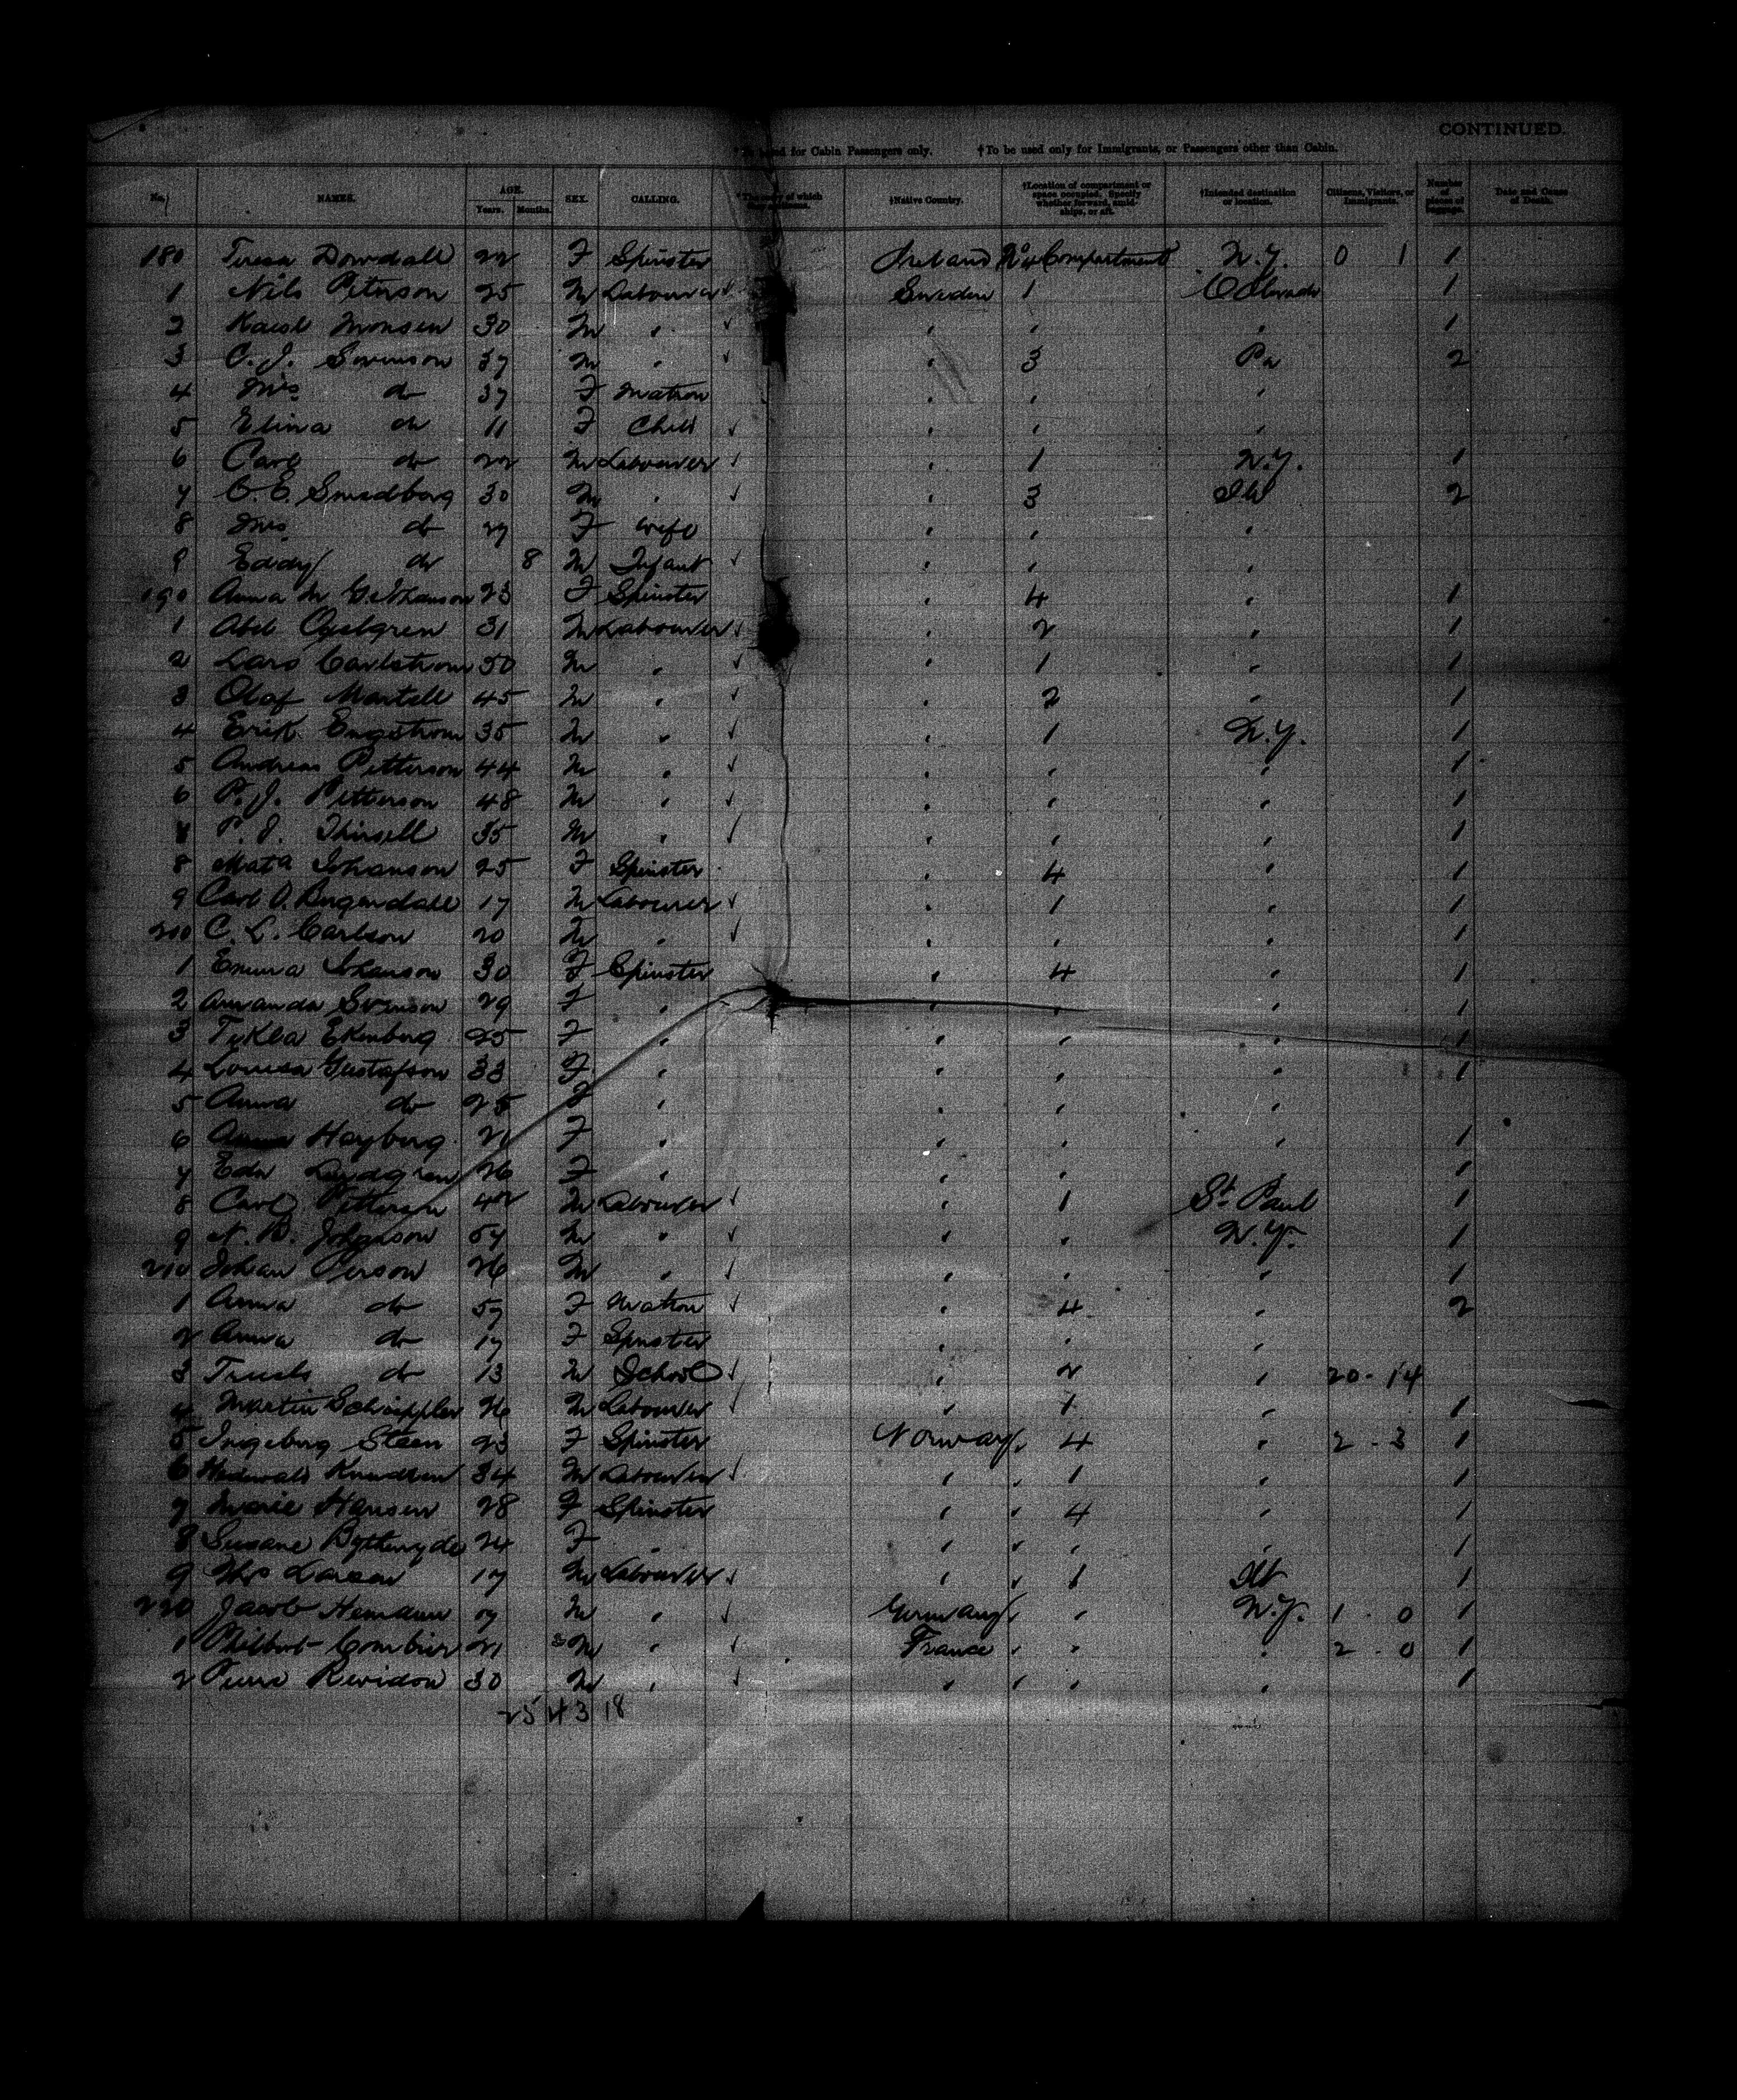 CONTINUED.
* To be used for Cabin Passengers only. † To be used only for Immigrants, or Passengers other than Cabin.
No. NAMES. AGE. Years. Months. SEX. CALLING. †Native Country. †Location of compartment or space occupied. Specify whether forward, amidships, or aft. †Intended destination or location. Citizens, Visitors, or Immigrants. Number of pieces of baggage. Date and Cause of Death.
180 Teresa Dowdall 22 F Spinster Ireland No 4 Compartment N.Y. 0 1 1
1 Nils Peterson 25 M Labourer Sweden 1 Colorado 1
2 Monsen 30 M " " " " 1
3 C. J. Swenson 37 M " " 3 Pa 2
4 Mrs do 37 F Matron " " "
5 Elina do 11 F Child " " "
6 Carl do 22 M Labourer " 1 N.Y. 1
7 C. E. Smedberg 30 M " " 3 Ill 2
8 Mrs do 27 F Wife " " "
9 Eddy do 8 M Infant " " "
190 Anna M G. Johanson 23 F Spinster " 4 " 1
1 Abel 31 M Labourer " 2 " 1
2 Lars Carlstrom 50 M " " 1 " 1
3 Olof Martell 45 M " " 2 " 1
4 Erik Engstrom 35 M " " 1 N.Y. 1
5 Andreas Petterson 44 M " " " " 1
6 P. J. Petterson 48 M " " " " 1
7 P. J. Thinsell 35 M " " " " 1
8 Mata Johanson 25 F Spinster " 4 " 1
9 Carl O. Bergendall 17 M Labourer " 1 " 1
200 C. L. Carlson 20 M " " " " 1
1 Emma Johanson 30 F Spinster " 4 " 1
2 Amanda Svenson 29 F " " " " 1
3 Tekla Ekenberg 25 F " " " " 1
4 Lovisa Gustafson 33 F " " " " 1
5 Anna do 25 F " " " "
6 Anna Hayberg F " " " " 1
7 Eda Lindgren 26 F " " " 1
8 Carl Petterson 42 M Labourer " 1 St Paul 1
9 N. B. Johanson 57 M " " " N.Y. 1
210 Johan Person 26 M " " " " 1
1 Anna do 57 F Matron " 4 " 2
2 Anna do 17 F Spinster " " "
3 Truels do 13 M School " 2 " 20 - 14
4 Martin Schoppler 26 M Labourer " 1 " 1
5 Ingeborg Steen 23 F Spinster Norway 4 " 2 - 3 1
6 Knudsen 34 M Labourer " " 1 1
7 Marie Hansen 28 F Spinster " " 4 " 1
8 Susane 24 F " " " " " 1
9 Larson 17 M Labourer " " 1 Ill 1
220 Jacob M " Germany " N.Y. 1 - 0 1
1 Combier 21 M " France " " " 2 - 0 1
2 Pierre Revidon 30 M " " " " " 1
25 4 3 18